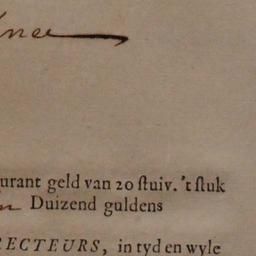 urant geld van 20 ſtuiv. 't ſtuk
Duizend guldens
RECTEURS, in tyd en wyle